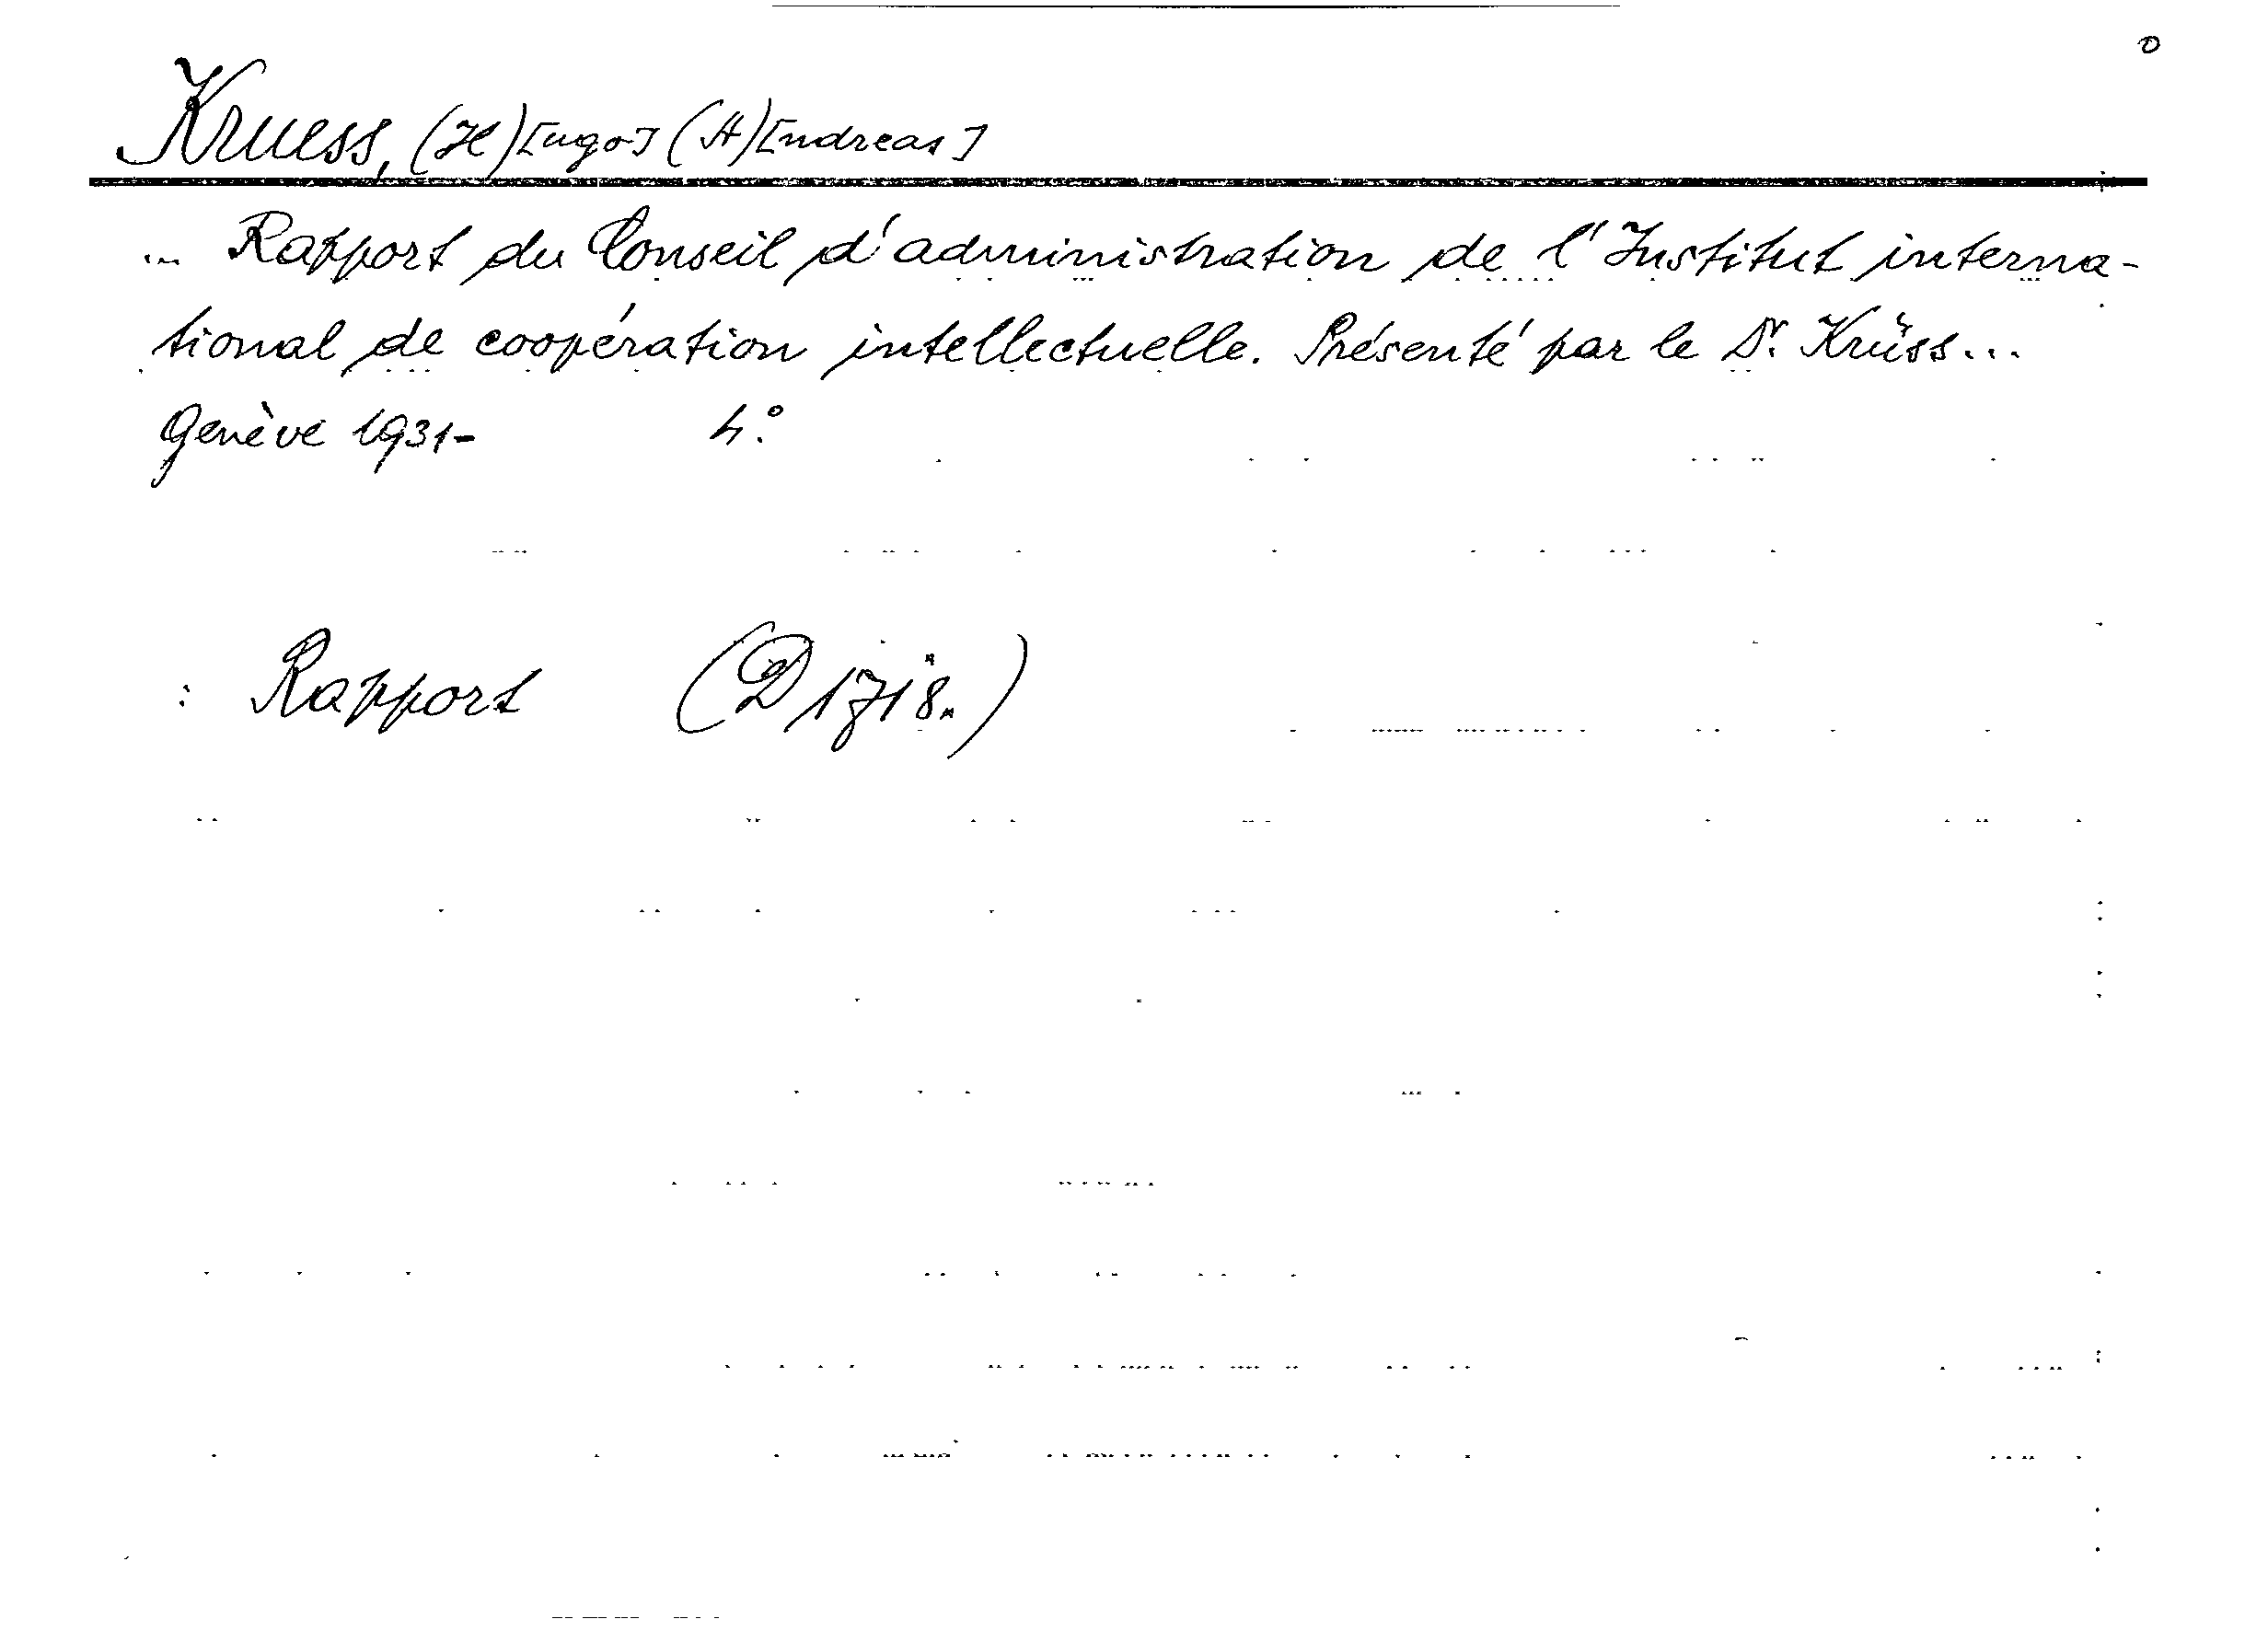 o
Kruess, (H)[ugo] (A)[ndreas]
... Rapport du Conseil d'administration de l'Institut interna-
tional de coopération intellectuelle. Présenté par le Dr. Krüss...
Genève 1931- 4°.
: Rapport (D 1718.)